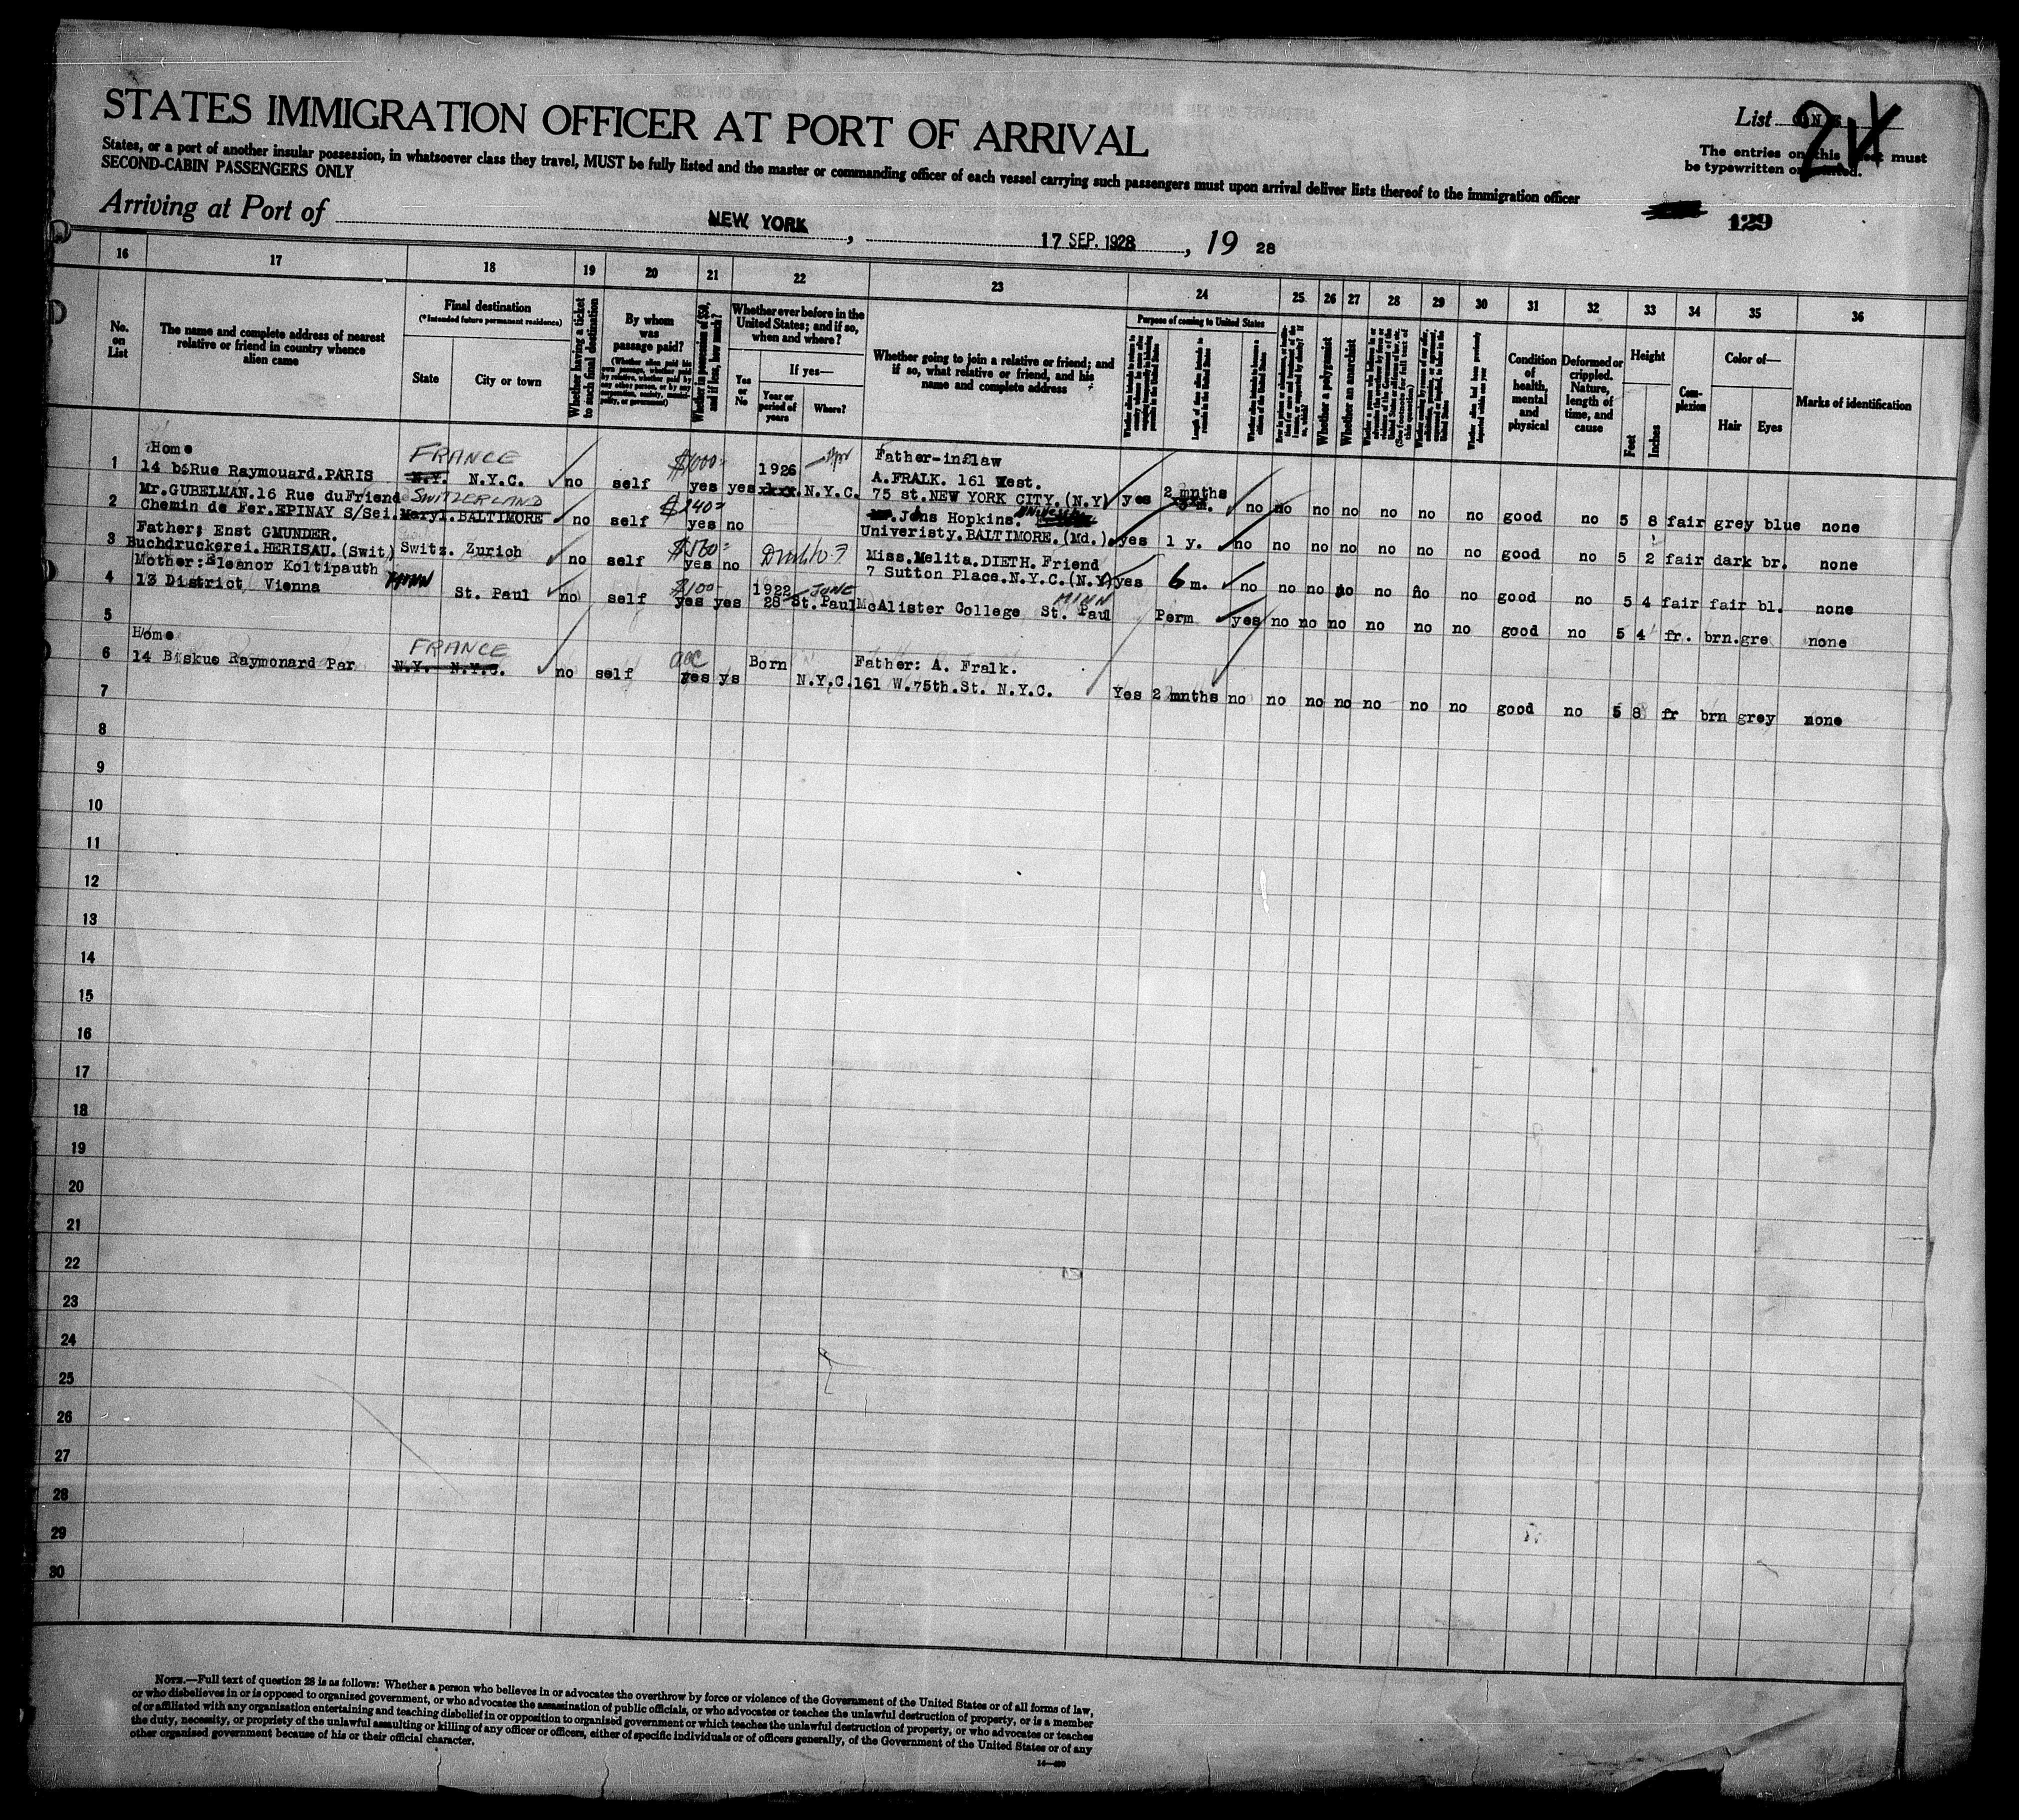 STATES IMMIGRATION OFFICER AT PORT OF ARRIVAL
List
The entries on this must
be typewritten or printed.
States, or a port of another insular possession, in whatsoever class they travel, MUST be fully listed and the master or commanding officer of each vessel carrying such passengers must upon arrival deliver lists thereof to the immigration officer
SECOND-CABIN PASSENGERS ONLY
129
Arriving at Port of NEW YORK, 17 SEP. 1928, 19 28
16 17 18 19 20 21 22 23 24 25 26 27 28 29 30 31 32 33 34 35 36
No. on List
The name and complete address of nearest relative or friend in country whence alien came
Final destination
(*Intended future permanent residence)
State
City or town
Whether having a ticket to such final destination
By whom was passage paid?
Whether in possession of $50, and if less, how much?
Whether ever before in the United States; and if so, when and where?
Yes or No
If yes—
Year or period of years
Where?
Whether going to join a relative or friend; and if so, what relative or friend, and his name and complete address
Purpose of coming to United States
Whether a polygamist
Whether an anarchist
Condition of health, mental and physical
Deformed or crippled. Nature, length of time, and cause
Height
Feet
Inches
Complexion
Color of—
Hair
Eyes
Marks of identification
Home FRANCE $1000- 1926 Father-inflaw
1 14 bsRue Raymouard.PARIS N.Y. N.Y.C. no self yes yes N.Y.C. A.FRALK. 161 West.
75 st.NEW YORK CITY.(N.Y) yes 2 mnths no no no no no no no good no 5 8 fair grey blue none
Mr.GUBELMAN.16 Rue duFriend SWITZERLAND $240-
2 Chemin de Fer.EPINAY S/Sei. Maryl. BALTIMORE no self yes no Jons Hopkins.
Univeristy.BALTIMORE.(Md.). yes 1 y. no no no no no no no good no 5 2 fair dark br. none
Father; Enst GMUNDER.
3 Buchdruckerei.HERISAU.(Swit) Switz. Zurich no self $560- yes no Miss.Melita.DIETH. Friend
7 Sutton Place.N.Y.C.(N.Y) yes 6 m. no no no no no no no no good no 5 4 fair fair bl. none
Mother:Eleanor Koltipauth MINN $100- 1922 JUNE MINN
4 13 District, Vienna St. Paul no self yes yes 28 St.Paul McAlister College, St. Paul Perm yes no no no no no no good no 5 4 fr. brn.gre none
5
Home FRANCE
6 14 Biskue Raymonard Par N.Y. N.Y.C. no self yes ys Born N.Y.C. Father: A. Fralk.
161 W.75th.St. N.Y.C. Yes 2 mnths no no no no no no no good no 5 8 fr brn grey none
7
8
9
10
11
12
13
14
15
16
17
18
19
20
21
22
23
24
25
26
27
28
29
30
NOTE.—Full text of question 28 is as follows: Whether a person who believes in or advocates the overthrow by force or violence of the Government of the United States or of all forms of law,
or who disbelieves in or is opposed to organized government, or who advocates the assassination of public officials, or who advocates or teaches the unlawful destruction of property, or is a member
of or affiliated with any organization entertaining and teaching disbelief in or opposition to organized government or which teaches the unlawful destruction of property, or who advocates or teaches
the duty, necessity, or propriety of the unlawful assaulting or killing of any officer or officers, either of specific individuals or of officers generally, of the Government of the United States or of any
other organised government because of his or their official character.